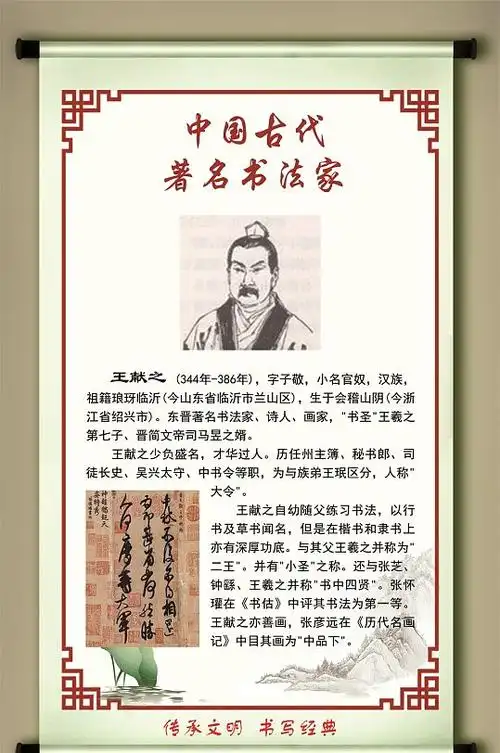 中国古代
著名书法家
王献之 (344年-386年)，字子敬，小名官奴，汉族，
祖籍琅玡临沂(今山东省临沂市兰山区)，生于会稽山阴(今浙
江省绍兴市)。东晋著名书法家、诗人、画家，"书圣"王羲之
第七子、晋简文帝司马昱之婿。
王献之少负盛名，才华过人。历任州主簿、秘书郎、司
徒长史、吴兴太守、中书令等职，为与族弟王珉区分，人称"
大令"。
王献之自幼随父练习书法，以行
书及草书闻名，但是在楷书和隶书上
亦有深厚功底。与其父王羲之并称为"
二王"。并有"小圣"之称。还与张芝、
钟繇、王羲之并称"书中四贤"。张怀
瓘在《书估》中评其书法为第一等。
王献之亦善画，张彦远在《历代名画
记》中目其画为"中品下"。
传承文明 书写经典